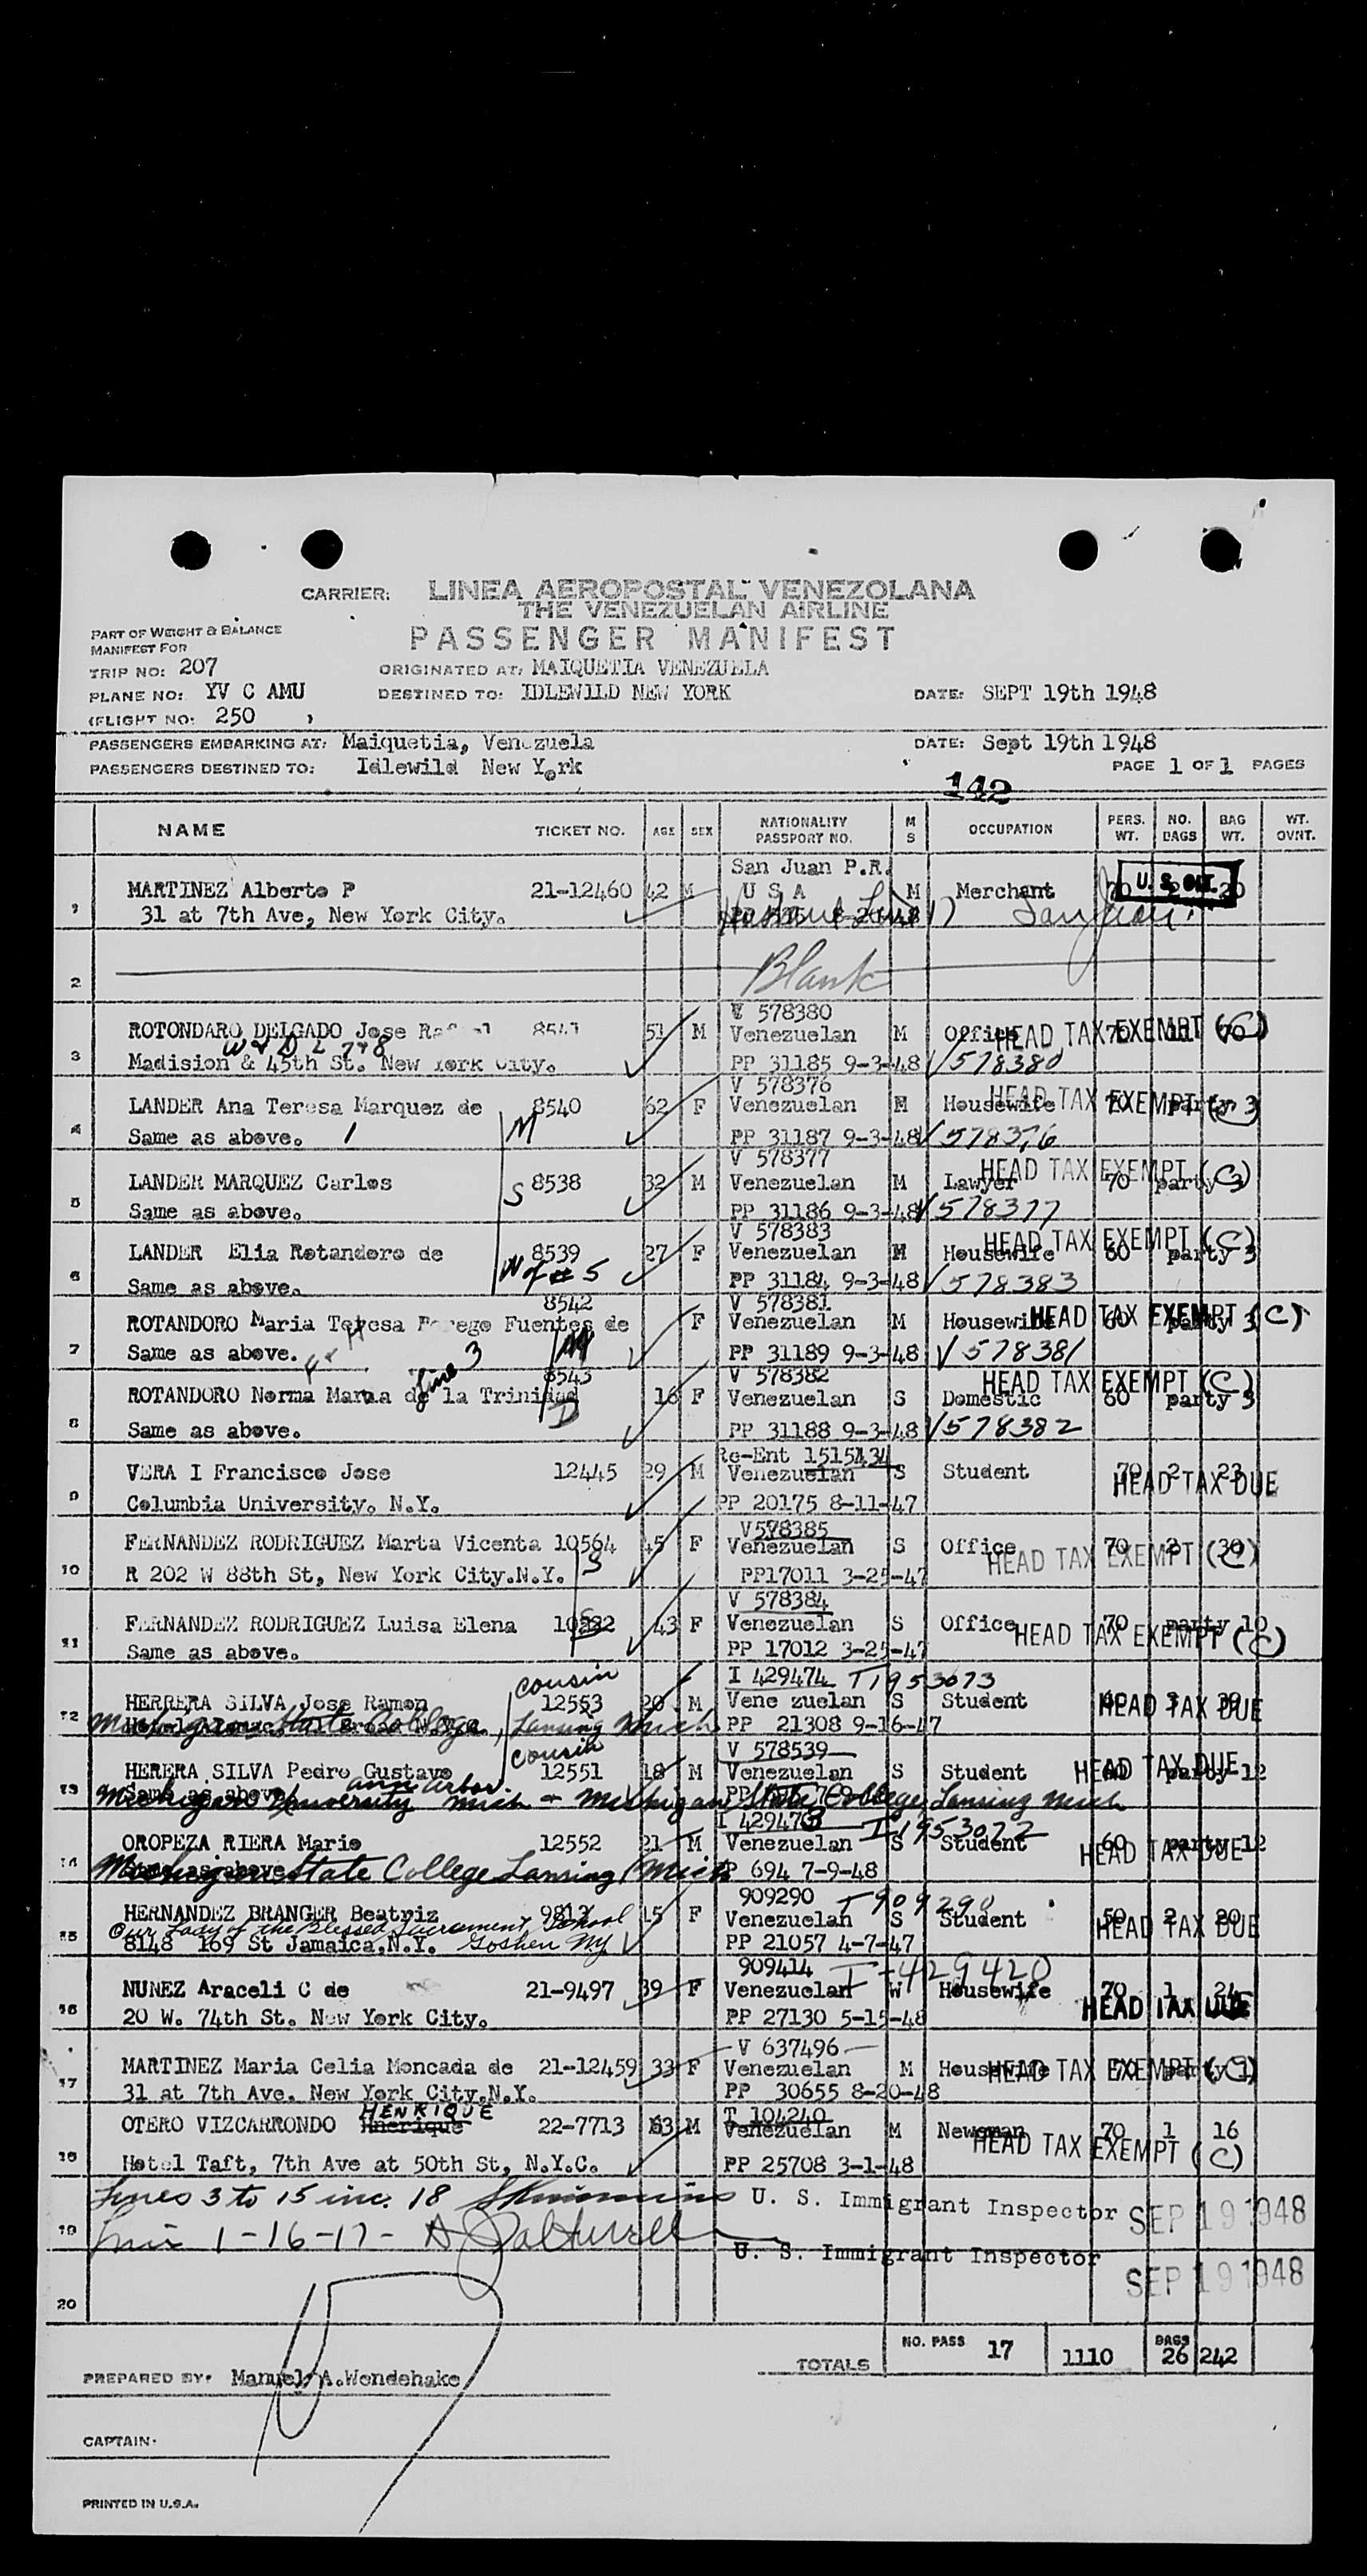 CARRIER: LINEA AEROPOSTAL VENEZOLANA
THE VENEZUELAN AIRLINE
PASSENGER MANIFEST
PART OF WEIGHT & BALANCE
MANIFEST FOR
TRIP NO: 207 ORIGINATED AT: MAIQUETIA VENEZUELA
PLANE NO: YV C AMU DESTINED TO: IDLEWILD NEW YORK DATE: SEPT 19th 1948
(FLIGHT NO: 250 )
PASSENGERS EMBARKING AT: Maiquetia, Venezuela DATE: Sept 19th 1948
PASSENGERS DESTINED TO: Idlewild New York PAGE 1 OF 1 PAGES
142
NAME TICKET NO. AGE SEX NATIONALITY PASSPORT NO. M S OCCUPATION PERS. WT. NO. BAGS BAG WT. WT. OVNT.
San Juan P.R.
1 MARTINEZ Alberto P 21-12460 42 M U S A M Merchant 70 2 20 U.S. CIT.
31 at 7th Ave, New York City. San Juan
2 Blank
V 578380
3 ROTONDARO DELGADO Jose Rafael 8541 51 M Venezuelan M Office HEAD TAX EXEMPT (C) 70
W & D L 7+8
Madision & 45th St. New York City. PP 31185 9-3-48 V578380
V 578376
4 LANDER Ana Teresa Marquez de 8540 62 F Venezuelan M Housewife HEAD TAX EXEMPT (C) party 3
Same as above. 1 M PP 31187 9-3-48 V 578376
V 578377
5 LANDER MARQUEZ Carlos 8538 32 M Venezuelan M Lawyer HEAD TAX EXEMPT (C) 70 party 3
Same as above. S PP 31186 9-3-48 V 578377
V 578383
6 LANDER Elia Rotandoro de 8539 27 F Venezuelan M Housewife HEAD TAX EXEMPT (C) 60 party 3
Same as above. W of # 5 PP 31184 9-3-48 V 578383
8542 V 578381
7 ROTANDORO Maria Teresa Fuentes de F Venezuelan M Housewife HEAD TAX EXEMPT (C) 60 party 3
Same as above. line 3 PP 31189 9-3-48 V 578381
8543 V 578382
8 ROTANDORO Norma Marta de la Trinidad 16 F Venezuelan S Domestic HEAD TAX EXEMPT (C) 60 party 3
Same as above. D PP 31188 9-3-48 V578382
Re-Ent 1515434
9 VERA I Francisco Jose 12445 29 M Venezuelan S Student 70 2 23 HEAD TAX DUE
Columbia University. N.Y. PP 20175 8-11-47
V578385
10 FERNANDEZ RODRIGUEZ Marta Vicenta 10564 45 F Venezuelan S Office HEAD TAX EXEMPT (C) 70 2 30
R 202 W 88th St, New York City.N.Y. S PP17011 3-25-47
V 578384
11 FERNANDEZ RODRIGUEZ Luisa Elena 43 F Venezuelan S Office HEAD TAX EXEMPT (C) 70 party 10
Same as above. PP 17012 3-25-47
cousin I 429474 T1953073
12 HERRERA SILVA Jose Ramon 12553 20 M Vene zuelan S Student HEAD TAX DUE
Michigan State College, Lansing Mich PP 21308 9-16-47
cousin V 578539
13 HERERA SILVA Pedro Gustavo 12551 18 M Venezuelan S Student HEAD TAX DUE party 12
Same as above
Michigan University ann arbor. mich - Michigan State College, Lansing Mich
I 429473 I1953072
14 OROPEZA RIERA Mario 12552 21 M Venezuelan S Student 60 party 12 HEAD TAX DUE
Same as above
Michigan State College Lansing, Mich PP 694 7-9-48
909290 T909290
15 HERNANDEZ BRANGER Beatriz 15 F Venezuelan S Student 50 2 20 HEAD TAX DUE
Our Lady of the Blessed Sacrament School
8148 169 St Jamaica.N.Y. Goshen NY PP 21057 4-7-47
909414 I-429420
16 NUNEZ Araceli C de 21-9497 39 F Venezuelan W Housewife 70 1 24 HEAD TAX DUE
20 W. 74th St. New York City. PP 27130 5-15-48
V 637496
17 MARTINEZ Maria Celia Moncada de 21-12459 33 F Venezuelan M Housewife HEAD TAX EXEMPT (C) 70
31 at 7th Ave. New York City.N.Y. PP 30655 8-20-48
HENRIQUE T 104240
18 OTERO VIZCARRONDO Hnerique 22-7713 63 M Venezuelan M Newsman 70 1 16 HEAD TAX EXEMPT (C)
Hotel Taft, 7th Ave at 50th St, N.Y.C. PP 25708 3-1-48
Lines 3 to 15 inc. 18 U. S. Immigrant Inspector SEP 19 1948
19 1-16-17- U. S. Immigrant Inspector SEP 19 1948
20
TOTALS NO. PASS 17 1110 BAGS 26 242
PREPARED BY: Manuel A.Wendehake
CAPTAIN:
PRINTED IN U.S.A.